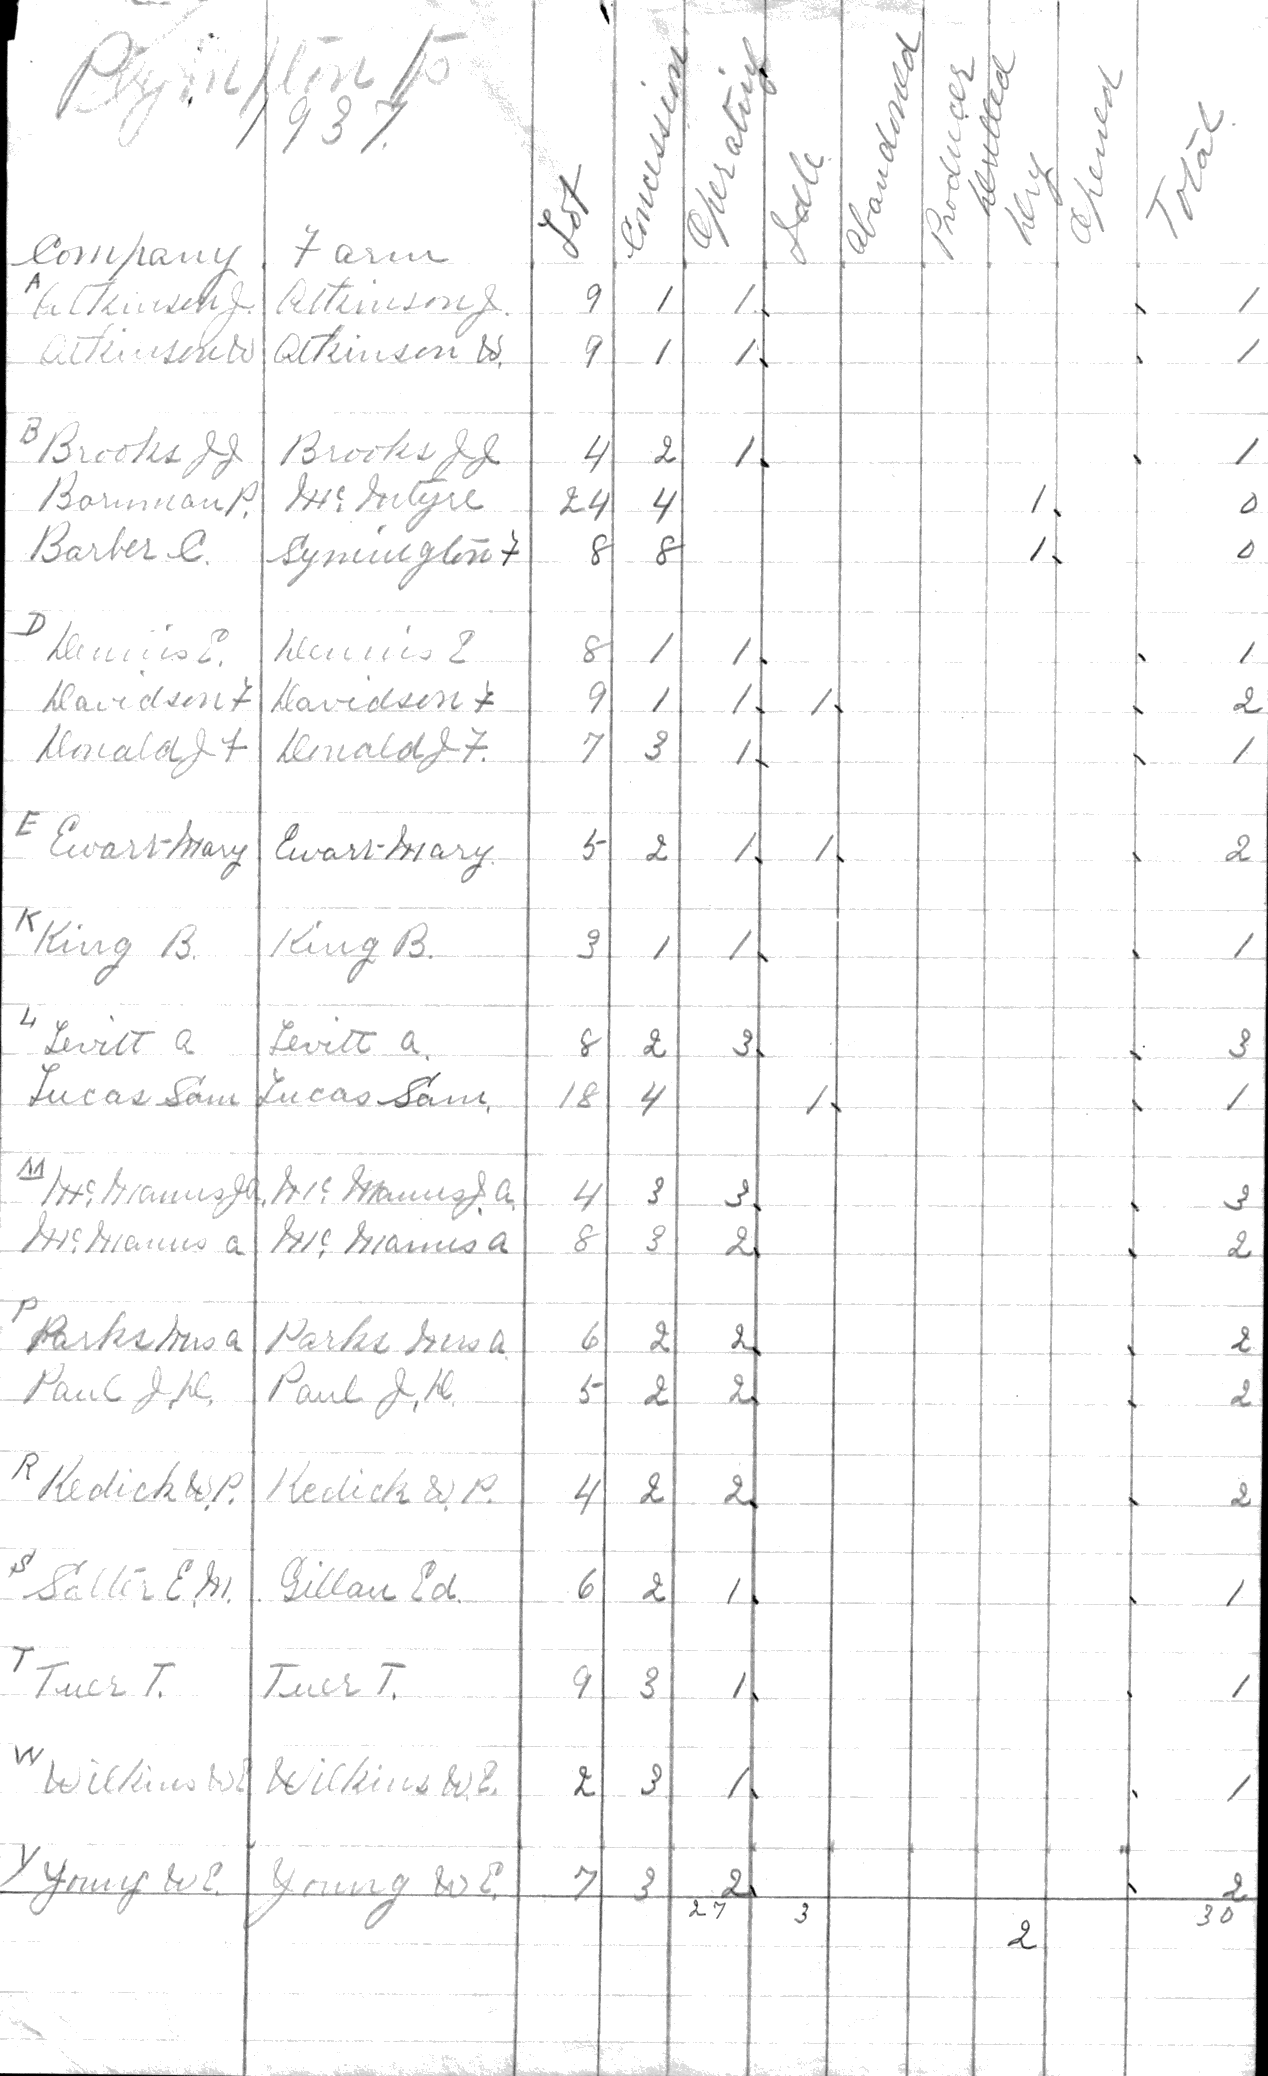 Plympton Tp
1937.
Company Farm Lot Concession Operating Idle Abandoned Producer Drilled Dry Opened Total
A
Atkinson J. Atkinson J. 9 1 1 1
Atkinson W Atkinson W. 9 1 1 1
B
Brooks J J Brooks J J 4 2 1 1
Bornman P. Mc Intyre 24 4 1 0
Barber C. Symington F 8 8 1 0
D
Dennis E. Dennis E 8 1 1 1
Davidson F Davidson F 9 1 1 1 2
Donald J F Donald J F. 7 3 1 1
E
Ewart Mary Ewart Mary. 5 2 1 1 2
K
King B. King B. 3 1 1 1
L
Levitt A Levitt A. 8 2 3 3
Lucas Sam Lucas Sam. 18 4 1 1
M
Mc Manus J A. Mc Manus J. A. 4 3 3 3
Mc Manus A Mc Manus A 8 3 2 2
P
Parks Mrs A Parks Mrs A. 6 2 2 2
Paul J. H. Paul J. H. 5 2 2 2
R
Redick W. P. Redick W. P. 4 2 2 2
S
Salter E. M. Gillan Ed. 6 2 1 1
T
Tuer T. Tuer T. 9 3 1 1
W
Wilkins W E Wilkins W. E. 2 3 1 1
Y
Young W E. Young W E. 7 3 2 2
27 3 30
2